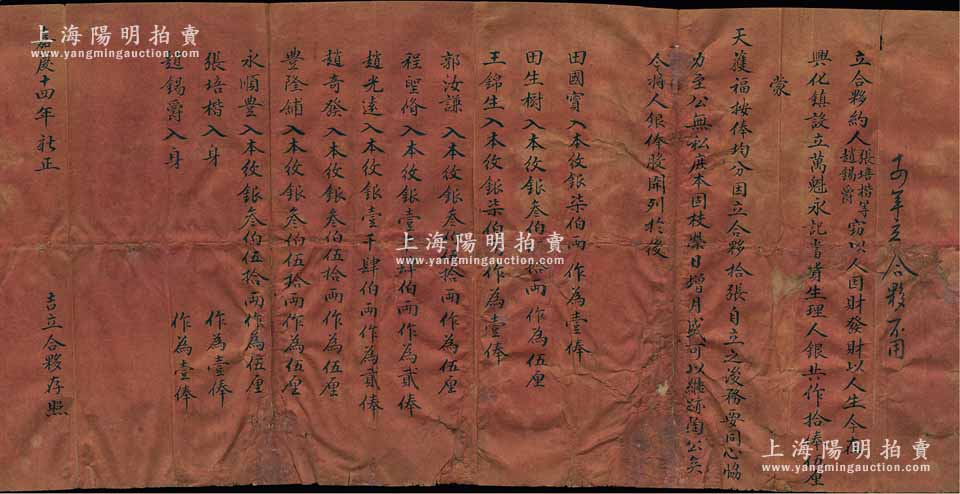 十四年立合夥不用
立合夥約人張培楷趙錫爵等窃以人因財發財以人生今在
興化鎮設立萬魁永記書賃生理人銀共作拾俸伍厘
蒙
天護福按俸均分因立合夥拾張自立之後務要同心恊
力至公無私庶本固枝榮日增月盛可以繼跡陶公矣
今將人銀俸股開列於後
田國寳入本紋銀柒伯兩作為壹俸
田生樹入本紋銀叁伯伍拾兩作為伍厘
王錦生入本紋銀柒伯兩作為壹俸
郭汝謙入本紋銀叁伯伍拾兩作為伍厘
程聖脩入本紋銀壹千肆伯兩作為貳俸
趙光遠入本紋銀壹千肆伯兩作為貳俸
趙奇發入本紋銀叁伯伍拾兩作為伍厘
豐隆鋪入本紋銀叁伯伍拾兩作為伍厘
永順豊入本紋銀叁伯伍拾兩作為伍厘
張培楷入身作為壹俸
趙錫爵入身作為壹俸
嘉慶十四年新正吉立合夥存照
上海陽明拍賣
www.yangmingauction.com
上海陽明拍賣
www.yangmingauction.com
上海陽明拍賣
www.yangmingauction.com